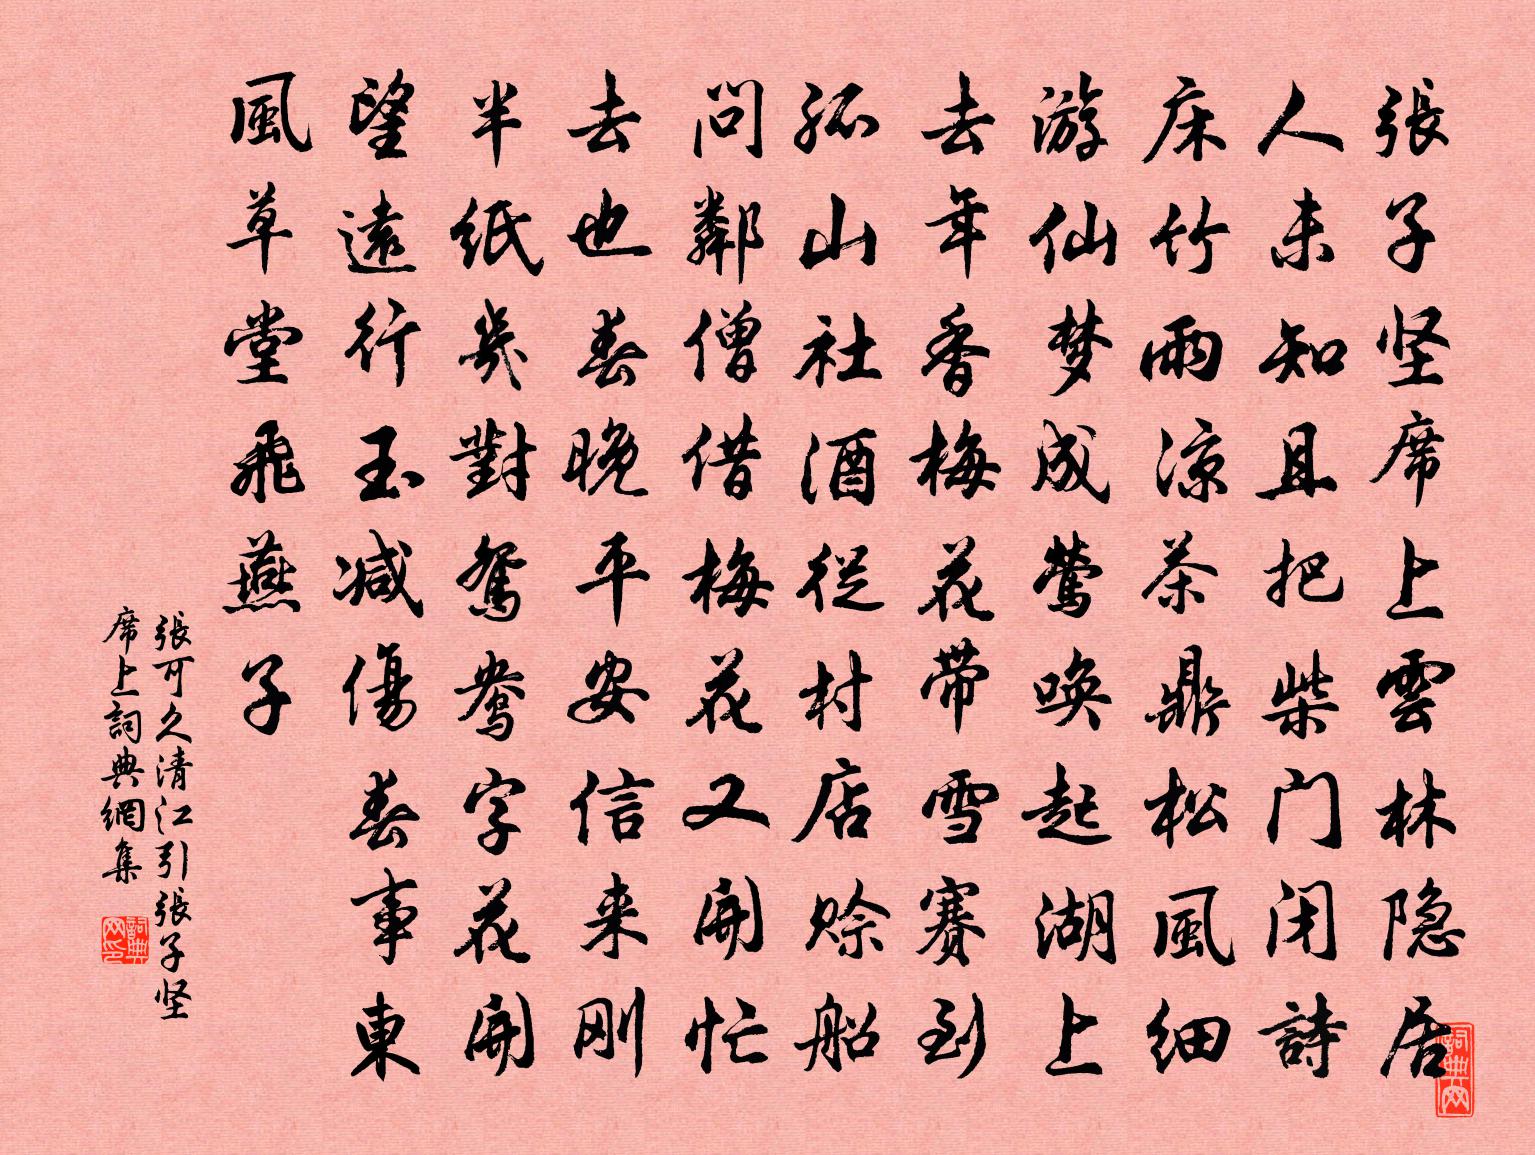 張子坚席上雲林隐居
人未知且把柴门闭詩
床竹雨凉茶鼎松風细
游仙梦成莺唤起湖上
去年香梅花带雪赛到
孤山社酒從村店赊船
問鄰僧借梅花又開忙
去也春晚平安信来刚
半纸幾對鴛鴦字花開
望遠行玉减傷春事東
風草堂飛燕子
張可久清江引張子坚
席上詞典網集
詞典网印
詞典网